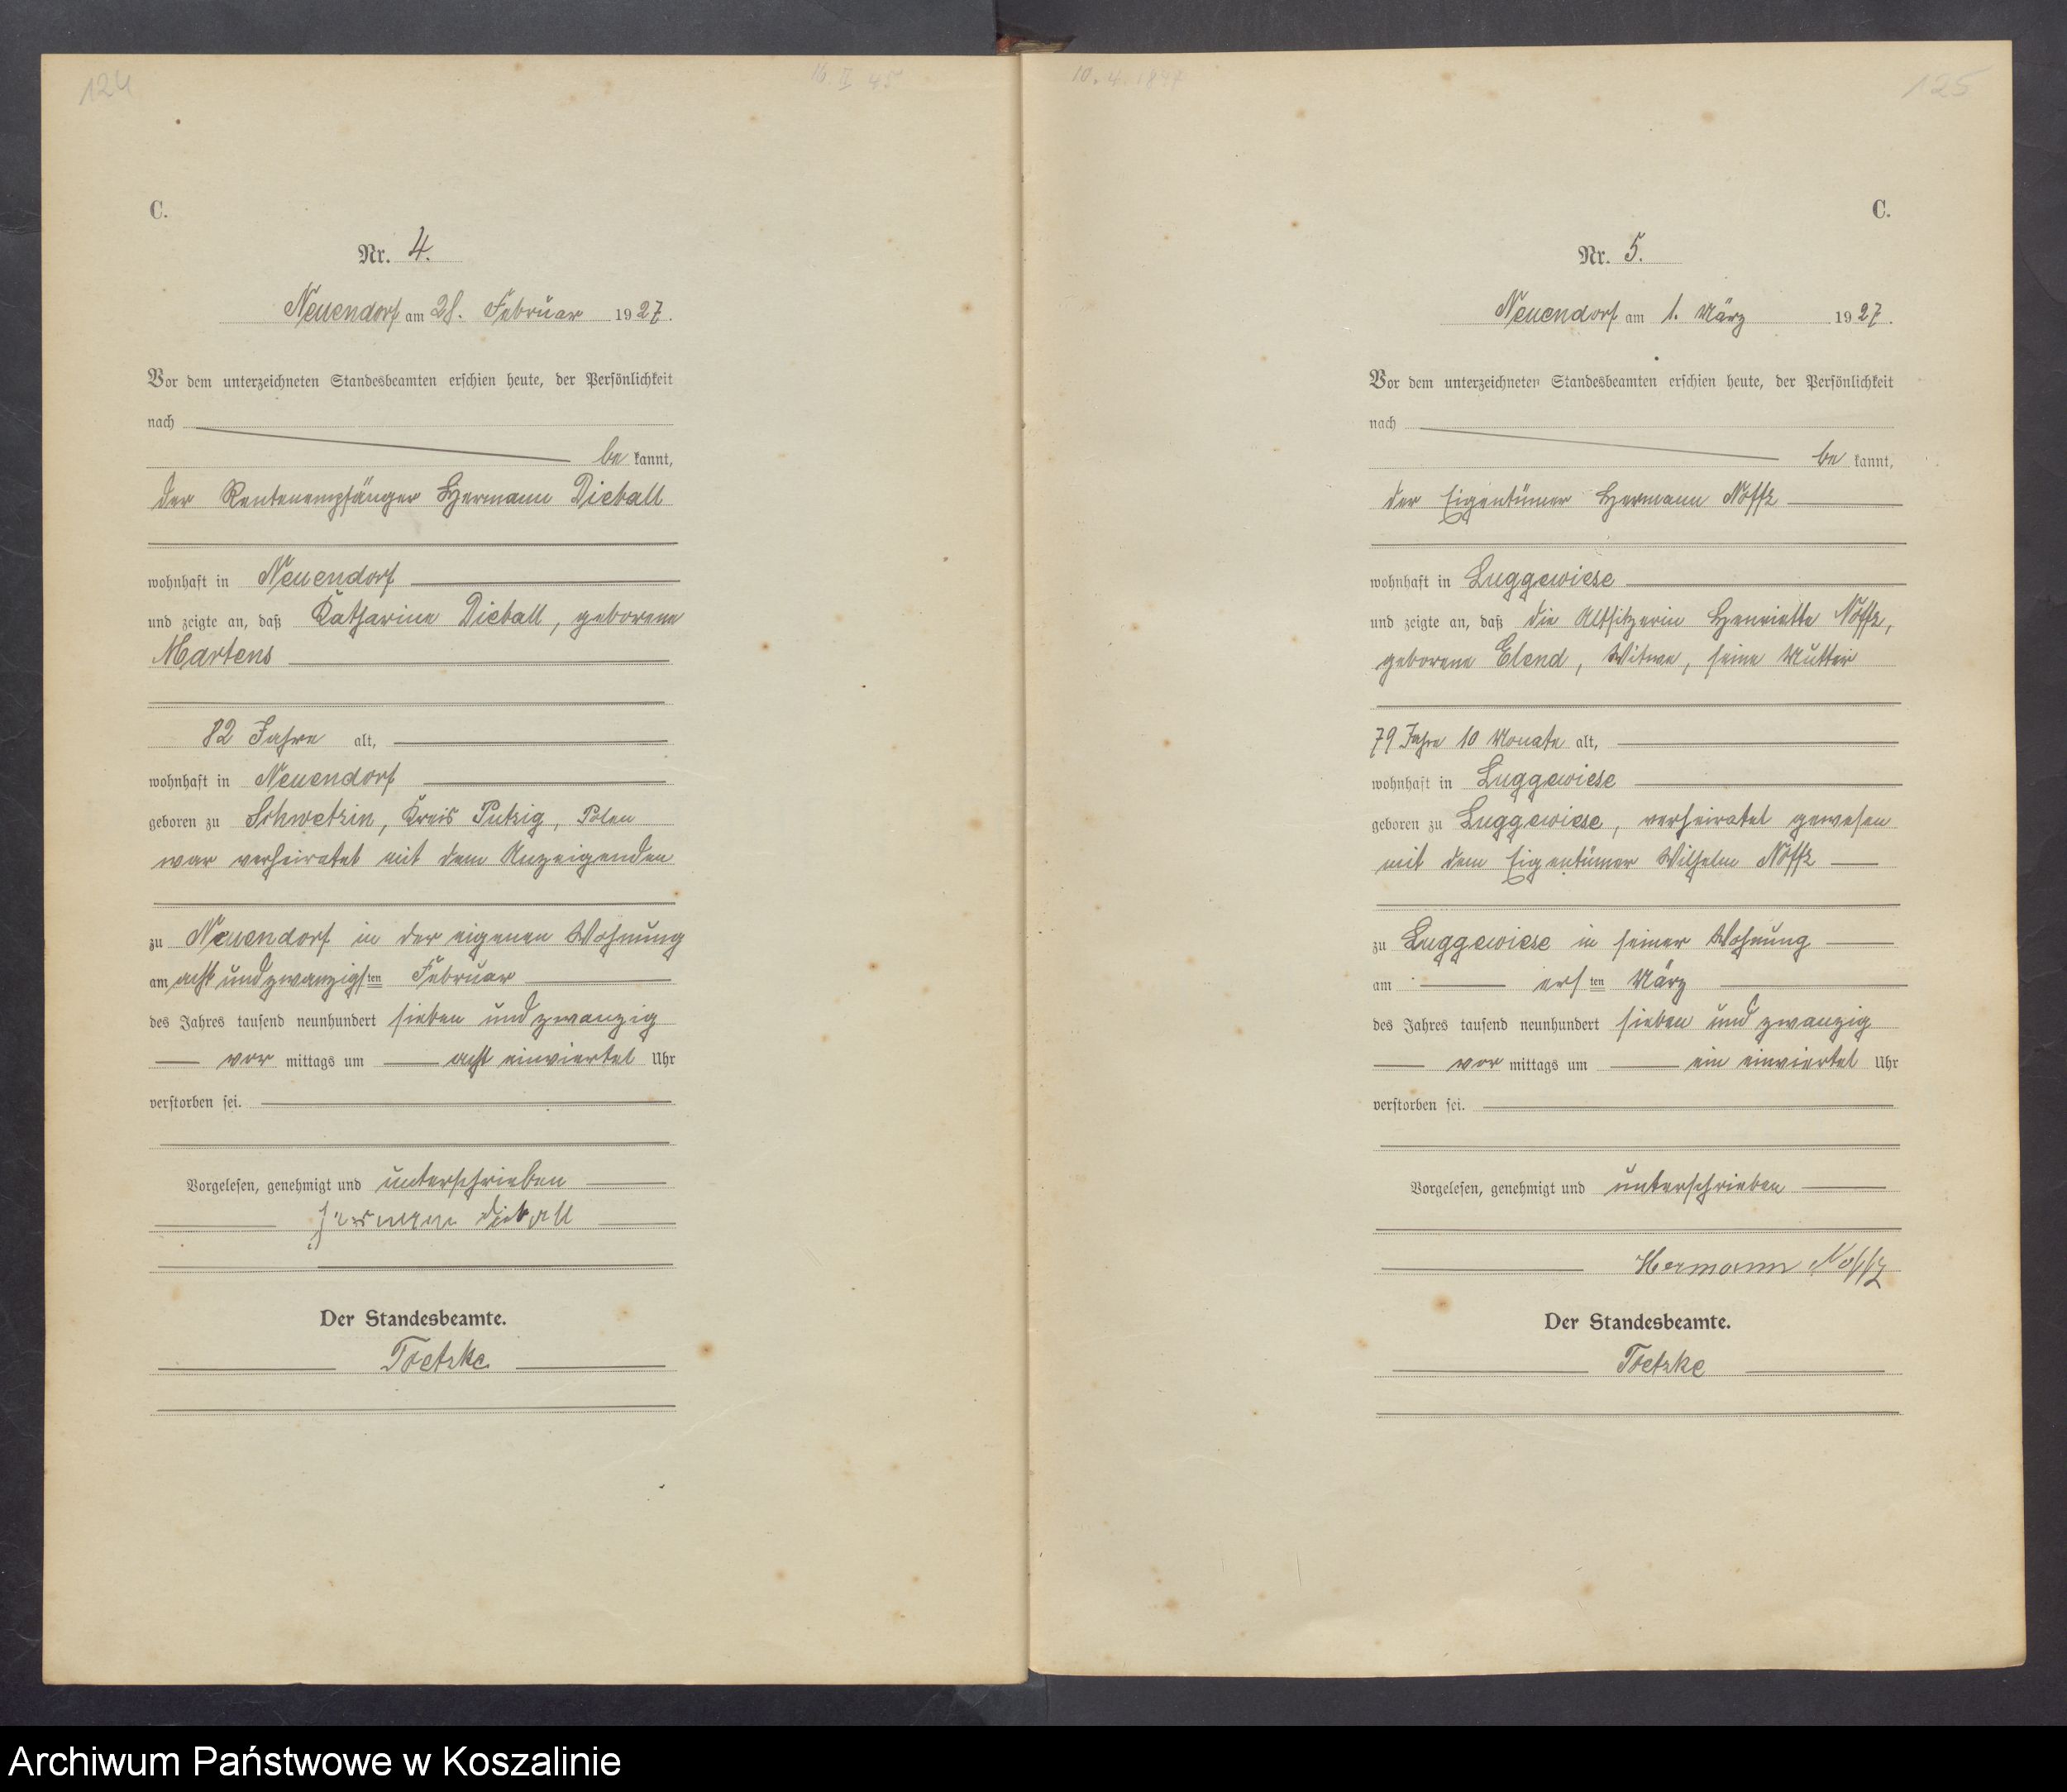 124
16. II 45
C.
Nr. 4.
Neuendorf am 28. Februar 1927.
Vor dem unterzeichneten Standesbeamten erschien heute, der Persönlichkeit
nach
be kannt,
der Rentenempfänger Hermann Dieball
wohnhaft in Neuendorf
und zeigte an, daß Katharina Dieball, geborene
Martens
82 Jahre alt,
wohnhaft in Neuendorf
geboren zu Schwetzin, Kreis Putzig, Polen
war verheiratet mit dem Anzeigenden
zu Neuendorf in der eigenen Wohnung
am acht und zwanzigsten Februar
des Jahres tausend neunhundert sieben und zwanzig
vor mittags um acht einviertel Uhr
verstorben sei.
Vorgelesen, genehmigt und unterschrieben
Hermann Dieball
Der Standesbeamte.
Toetzke
10. 4. 1847
125
C.
Nr. 5.
Neuendorf am 1. März 1927.
Vor dem unterzeichneten Standesbeamten erschien heute, der Persönlichkeit
nach
be kannt,
der Eigentümer Hermann Noffz
wohnhaft in Luggewiese
und zeigte an, daß die Altsitzerin Henriette Noffz,
geborene Elend, Witwe, seine Mutter
79 Jahre 10 Monate alt,
wohnhaft in Luggewiese
geboren zu Luggewiese, verheiratet gewesen
mit dem Eigentümer Wilhelm Noffz
zu Luggewiese in seiner Wohnung
am ersten März
des Jahres tausend neunhundert sieben und zwanzig
vor mittags um ein einviertel Uhr
verstorben sei.
Vorgelesen, genehmigt und unterschrieben
Hermann Noffz
Der Standesbeamte.
Toetzke
Archiwum Państwowe w Koszalinie